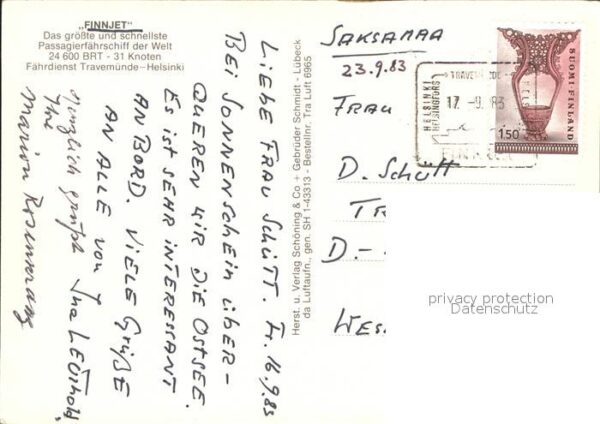 „FINNJET"
Das größte und schnellste
Passagierfährschiff der Welt
24 600 BRT - 31 Knoten
Fährdienst Travemünde-Helsinki
Fr. 16.9.83
LIEBE FRAU SCHÜTT.
BEI SONNENSCHEIN ÜBER-
QUEREN WIR DIE OSTSEE.
ES IST SEHR INTERESSANT
AN BORD. VIELE GRÜßE
AN ALLE von
Ihre
Marion
Herst. u. Verlag Schöning & Co + Gebrüder Schmidt - Lübeck
da Luftaufn., gen. SH 1-43313 - Bestellnr. Tra Luft 6965
SAKSAMAA
23.9.83
FRAU
D. Schütt
TR
D-
WES
HELSINKI
HELSINGFORS
17 -9. 83
SUOMI FINLAND
1,50
privacy protection
Datenschutz